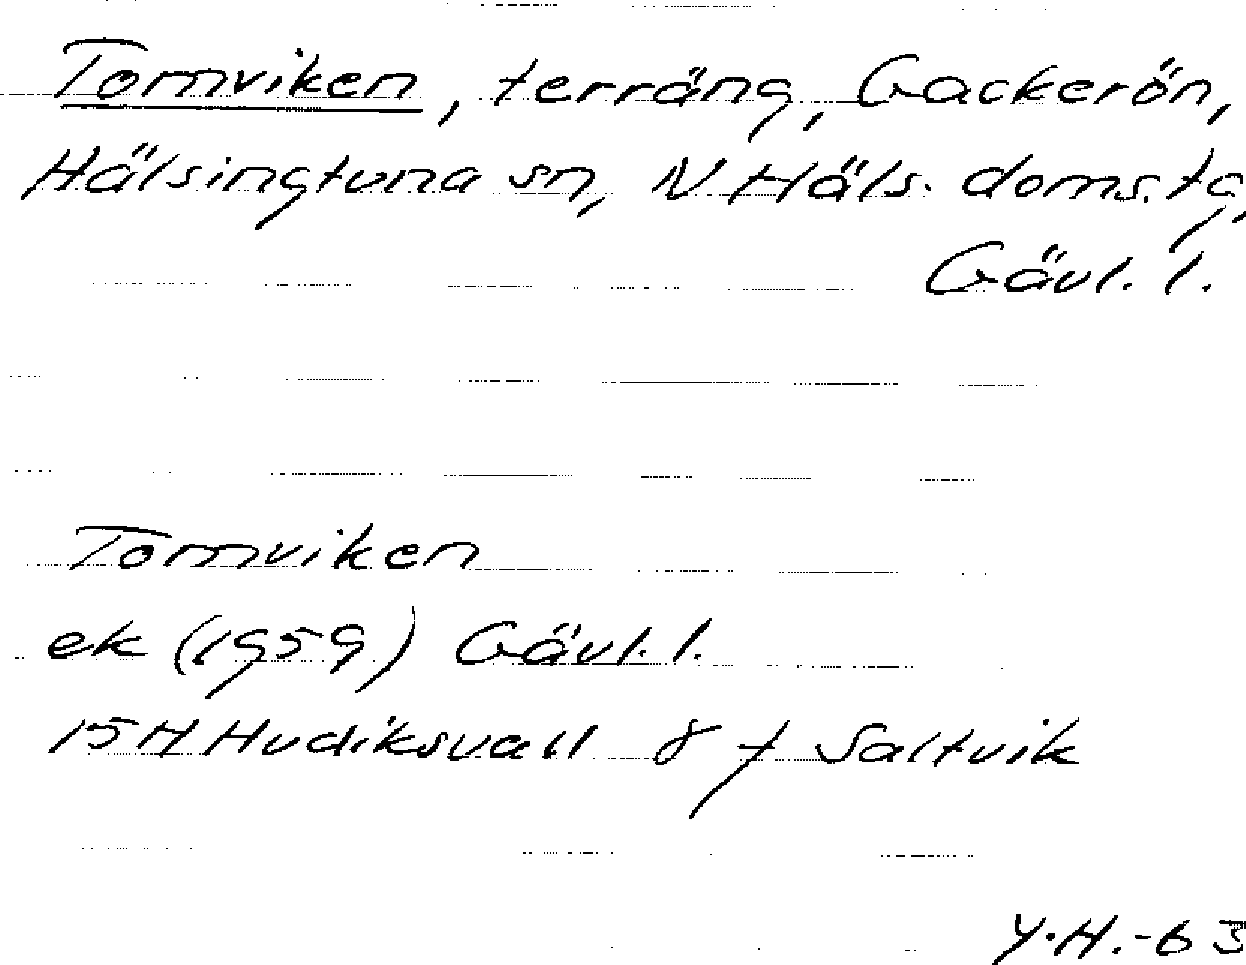 Tomviken, terräng, Gackerön,
Hälsingtuna sn, N Häls. doms. tg,
Gävl. l.
Tomviken
ek (1959) Gävl. l.
15H Hudiksvall 8 f Saltvik
Y.H.-63